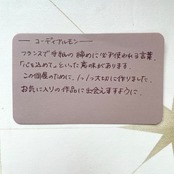 コーディアルモン
フランスで手紙の締めに使われる言葉。
「心を込めて」といった意味があります。
この個展のために、1つ1つ大切に作りました。
お気に入りの作品に出会えますように。